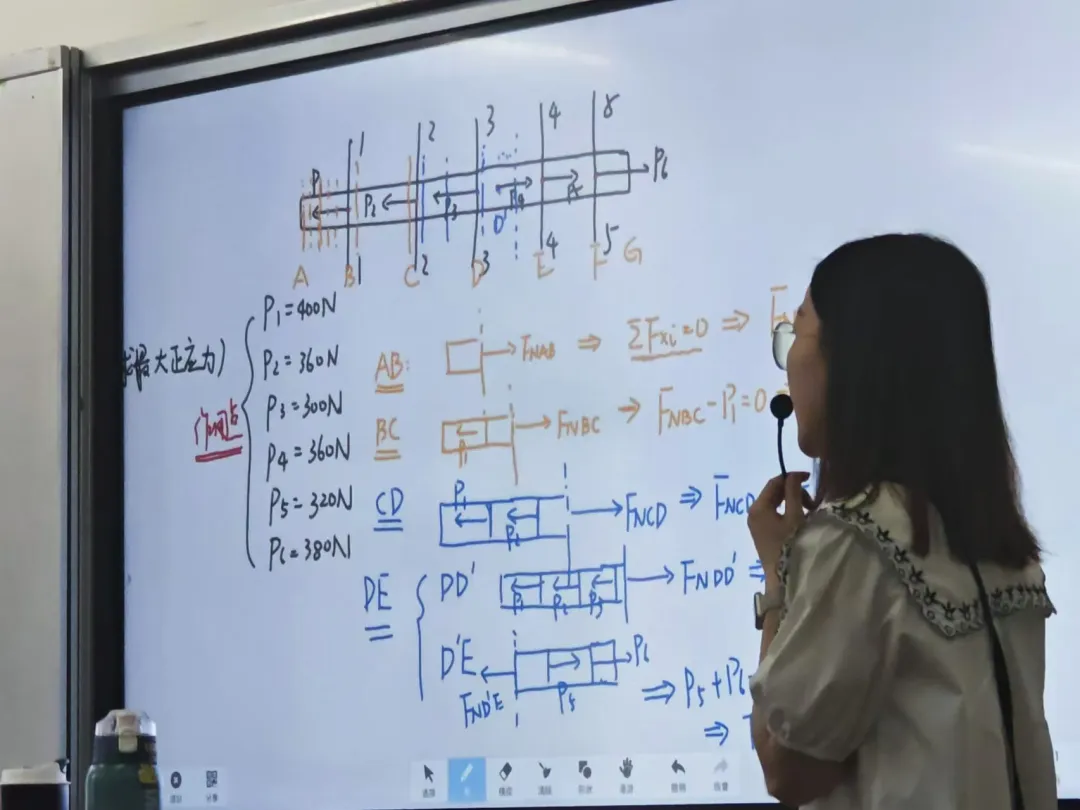 1 2 3 4 8
P P2 P3 P4 P5 P6
D'
1 2 3 4 5
A B C D E F G
P1=400N
P2=360N
P3=300N
P4=360N
P5=320N
P6=380N
大正应力)
AB: FNAB ⇒ ΣFxi=0 ⇒ F
BC P1 FNBC → FNBC-P1=0
CD P1 P2 FNCD ⇒ FNCD
DE
DD' P1 P2 P3 FNDD' ⇒
D'E FND'E P5 P6
⇒ P5+P6
⇒